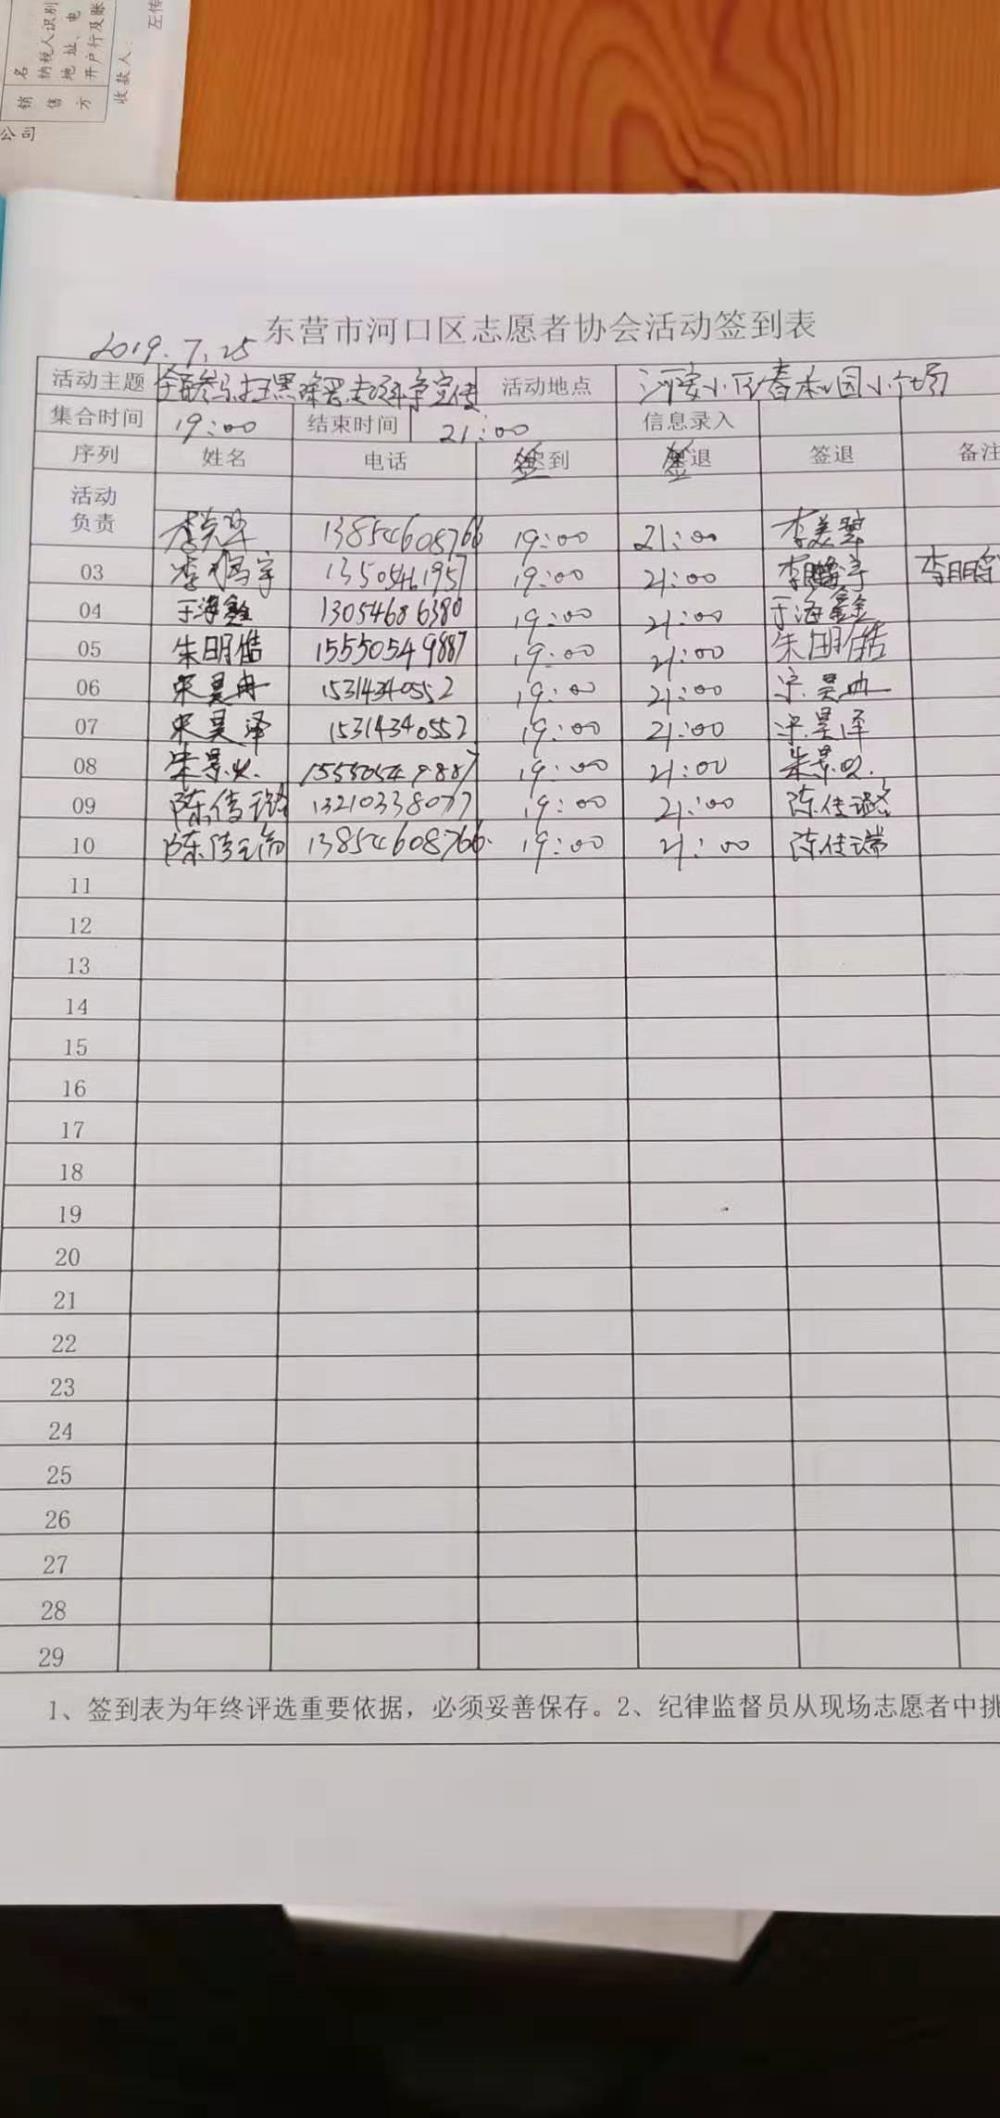 销售方
名
纳税人识别
地址、电
开户行及账
收款人:
公司
东营市河口区志愿者协会活动签到表
2019.7.25
活动主题 全民参与扫黑除恶专项斗争宣传 活动地点 河安小区春和园小广场
集合时间 19:00 结束时间 21:00 信息录入
序列 姓名 电话 签到 签退 签退 备注
活动
负责 13854608766 19:00 21:00 李美翠
03 李鹏宇 13505461957 19:00 21:00 李鹏宇 李鹏宇
04 于海鑫 13054686380 19:00 21:00 于海鑫
05 朱明皓 15550549887 19:00 21:00 朱明皓
06 宋昊冉 15314340552 19:00 21:00 宋昊冉
07 宋昊泽 15314340552 19:00 21:00 宋昊泽
08 15550549887 19:00 21:00
09 陈佳璐 13210338077 19:00 21:00 陈佳璐
10 陈佳瑞 13854608766 19:00 21:00 陈佳瑞
11
12
13
14
15
16
17
18
19
20
21
22
23
24
25
26
27
28
29
1、签到表为年终评选重要依据，必须妥善保存。2、纪律监督员从现场志愿者中挑